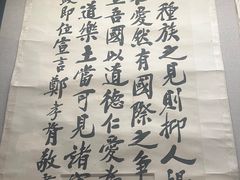 種族之見則抑人揚
愛然有國際之爭
立吾國以道德仁愛為
道樂土當可見諸實
政即位宣言鄭孝胥敬